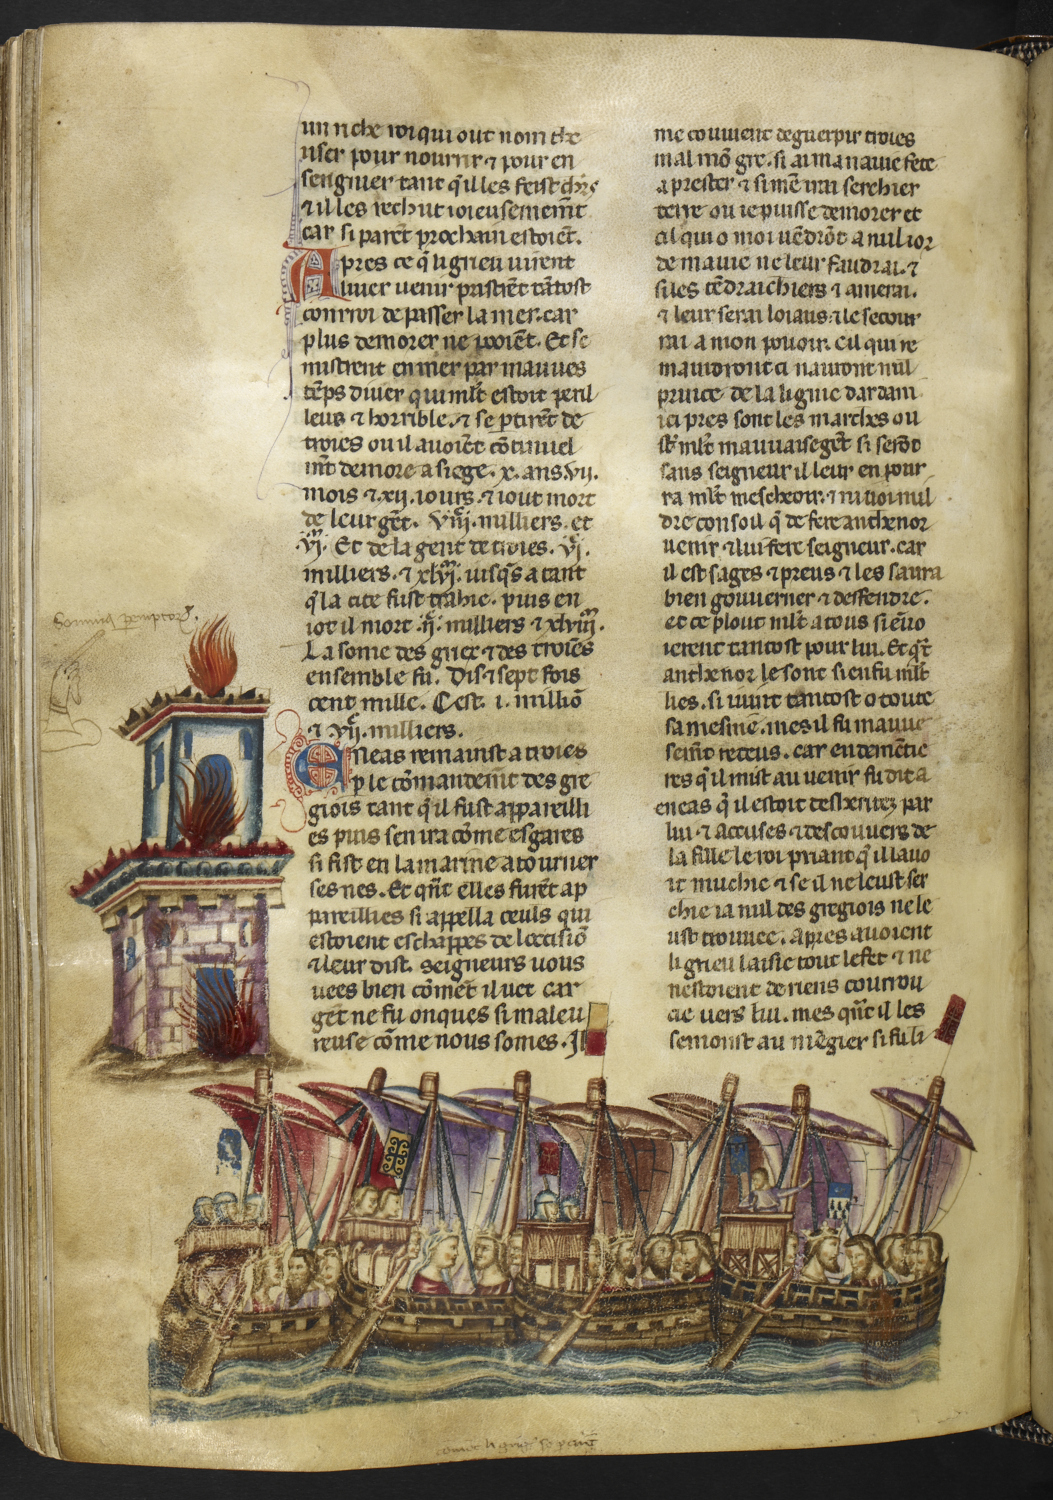 un riche roi qui out nom the
user pour nourrir ⁊ pour en
seignier tant q̃ il les feist chr̃s
⁊ il les rechut ioieusemem̃t
car si parẽt prochain estoiẽt.
Apres ce q̃ li grieu uirent
liuer uenir pristrẽt tãtost
conrroi de passer la mer. car
plus demorer ne pooiẽt. Et se
mistrent en mer par mauues
tẽps diuer qui ml̃t estoit peril
leus ⁊ horrible. ⁊ se ꝑtirẽt de
troies ou il auoiẽt cõtinuel
mñt demore a siege. x. ans. vij.
mois ⁊ .xij. iours. ⁊ iout mort
de leur gẽt. viij. milliers. et
.vj. Et de la gent de troies. vj.
milliers. ⁊ xlvj. iusq̃s a tant
q̃ la cite fust trahie. puis en
iot il mort .ij. milliers ⁊ xlviij.
La some des griex ⁊ des troiẽs
ensemble fu. Dis ⁊ sept fois
cent mille. Cest. i. milliõ
⁊ vij. milliers.
Eneas remainst a troies
ꝑ le cõmandem̃t des gre
giois tant q̃ il fust appareilli
es puis sen ira cõme esgares
si fist en la marine atourner
ses nes. Et qñt elles furẽt ap
pareillies si appella ceuls qui
estoient eschappes de loccisiõ
⁊ leur dist. seigneurs uous
uees bien cõmẽt il uet car
gẽt ne fu onques si maleu
reuse cõme nous somes. Il
me couuient deguerpir troies
mal mõ gre. si ai ma nauie fete
aprester ⁊ si mẽ irai serchier
terre ou ie puisse demorer et
cil qui o moi uẽdrõt a nul ior
de ma uie ne leur faudrai. ⁊
si les tẽdrai chiers ⁊ amerai.
⁊ leur serai loiaus. ⁊ le secour
rai a mon pouoir. Cil qui re
maindront ci nauront nul
prince de la lignie dardani
ici pres sont les marches ou
st̃ ml̃t mauuaise gẽt si serõt
sans seigneur il leur en pour
ra ml̃t mescheoir. ⁊ ni uoi nul
dre consoil q̃ de fere anthenor
uenir ⁊ lui fere seigneur. car
il est sages ⁊ preus ⁊ les saura
bien gouuerner ⁊ deffendre.
et ce plout ml̃t a tous si ẽuo
ierent tantost pour lui. Et qñt
anthenor le sont si en fu ml̃t
lies. si iuint tantost o toute
sa mesnie. mes il fu mauue
sem̃t receus. car endemẽtie
res q̃ il mist au uenir fu dit a
eneas q̃ il estoit desheritez par
lui ⁊ accuses ⁊ descouuers de
la fille le roi priant q̃ il lauo
it mucie ⁊ se il ne leust ser
chie ia nul des gregiois ne le
ust trouuee. Apres auoient
li grieu laisie tout lefet ⁊ ne
nestoient de riens courrou
cie uers lui. mes qñt il les
semonst au mẽgier si fu li